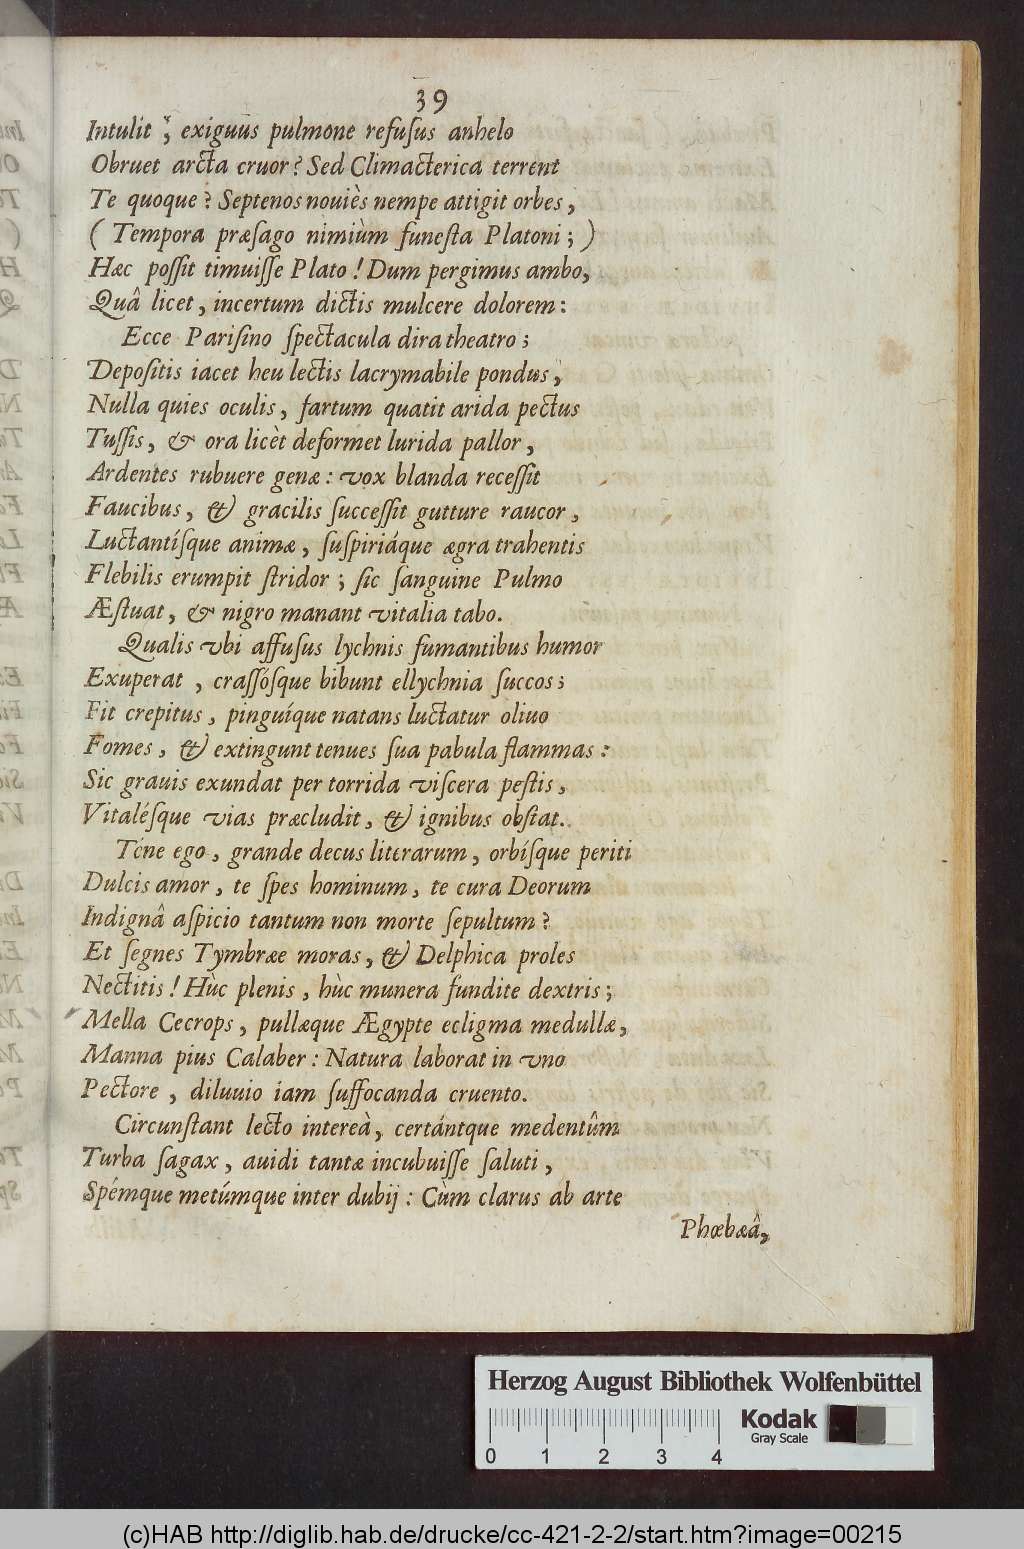 39
Intulit ; exiguus pulmone refuſus anhelo
Obruet arcta cruor ? Sed Climacterica terrent
Te quoque ? Septenos nouiès nempe attigit orbes ,
( Tempora præſago nimiùm funeſta Platoni ; )
Hæc poſſit timuiſſe Plato ! Dum pergimus ambo,
Quâ licet , incertum dictis mulcere dolorem :
Ecce Pariſino ſpectacula dira theatro ;
Depoſitis iacet heu lectis lacrymabile pondus ,
Nulla quies oculis , fartum quatit arida pectus
Tuſſis, & ora licèt deformet lurida pallor ,
Ardentes rubuere genæ : vox blanda receſſit
Faucibus , & gracilis ſucceſſit gutture raucor ,
Luctantíſque animæ , ſuſpiriáque ægra trahentis
Flebilis erumpit ſtridor ; ſic ſanguine Pulmo
Æſtuat, & nigro manant vitalia tabo.
Qualis vbi affuſus lychnis fumantibus humor
Exuperat , craſſóſque bibunt ellychnia ſuccos ;
Fit crepitus , pinguíque natans luctatur oliuo
Fomes , & extingunt tenues ſua pabula flammas :
Sic grauis exundat per torrida viſcera peſtis ,
Vitaléſque vias præcludit , & ignibus obſtat.
Téne ego , grande decus literarum , orbíſque periti
Dulcis amor , te ſpes hominum , te cura Deorum
Indignâ aſpicio tantum non morte ſepultum ?
Et ſegnes Tymbræe moras , & Delphica proles
Nectitis ! Hùc plenis , hùc munera fundite dextris ;
Mella Cecrops , pullæque Ægypte ecligma medullæ ,
Manna pius Calaber : Natura laborat in vno
Pectore , diluuio iam ſuffocanda cruento.
Circunſtant lecto intereà , certántque medentûm
Turba ſagax , auidi tantæ incubuiſſe ſaluti ,
Spémque metúmque inter dubij : Cùm clarus ab arte
Phœbæâ,
Herzog August Bibliothek Wolfenbüttel
Kodak
Gray Scale
0 1 2 3 4
(c)HAB http://diglib.hab.de/drucke/cc-421-2-2/start.htm?image=00215